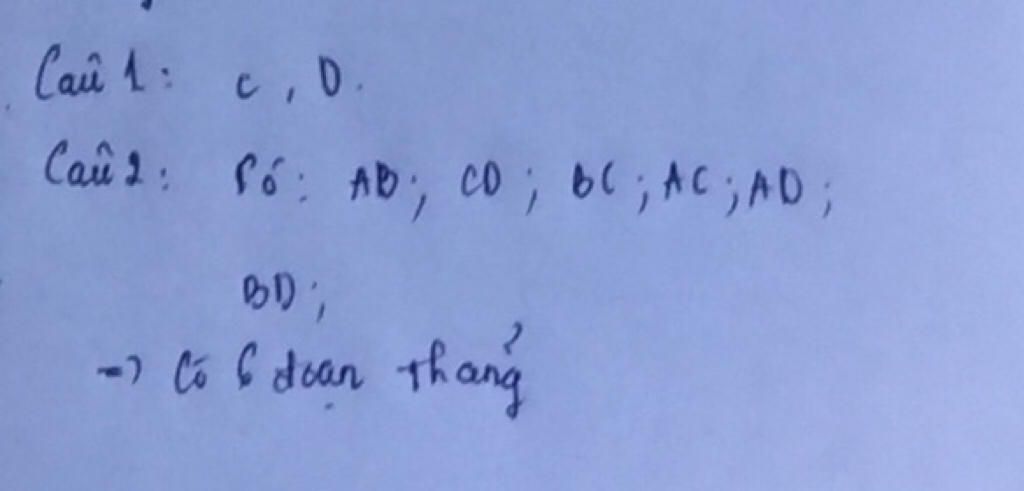 Câu 1: C, D.
Câu 2: Có: AB; CD; BC; AC; AD;
BD;
=> Có 6 đoạn thẳng